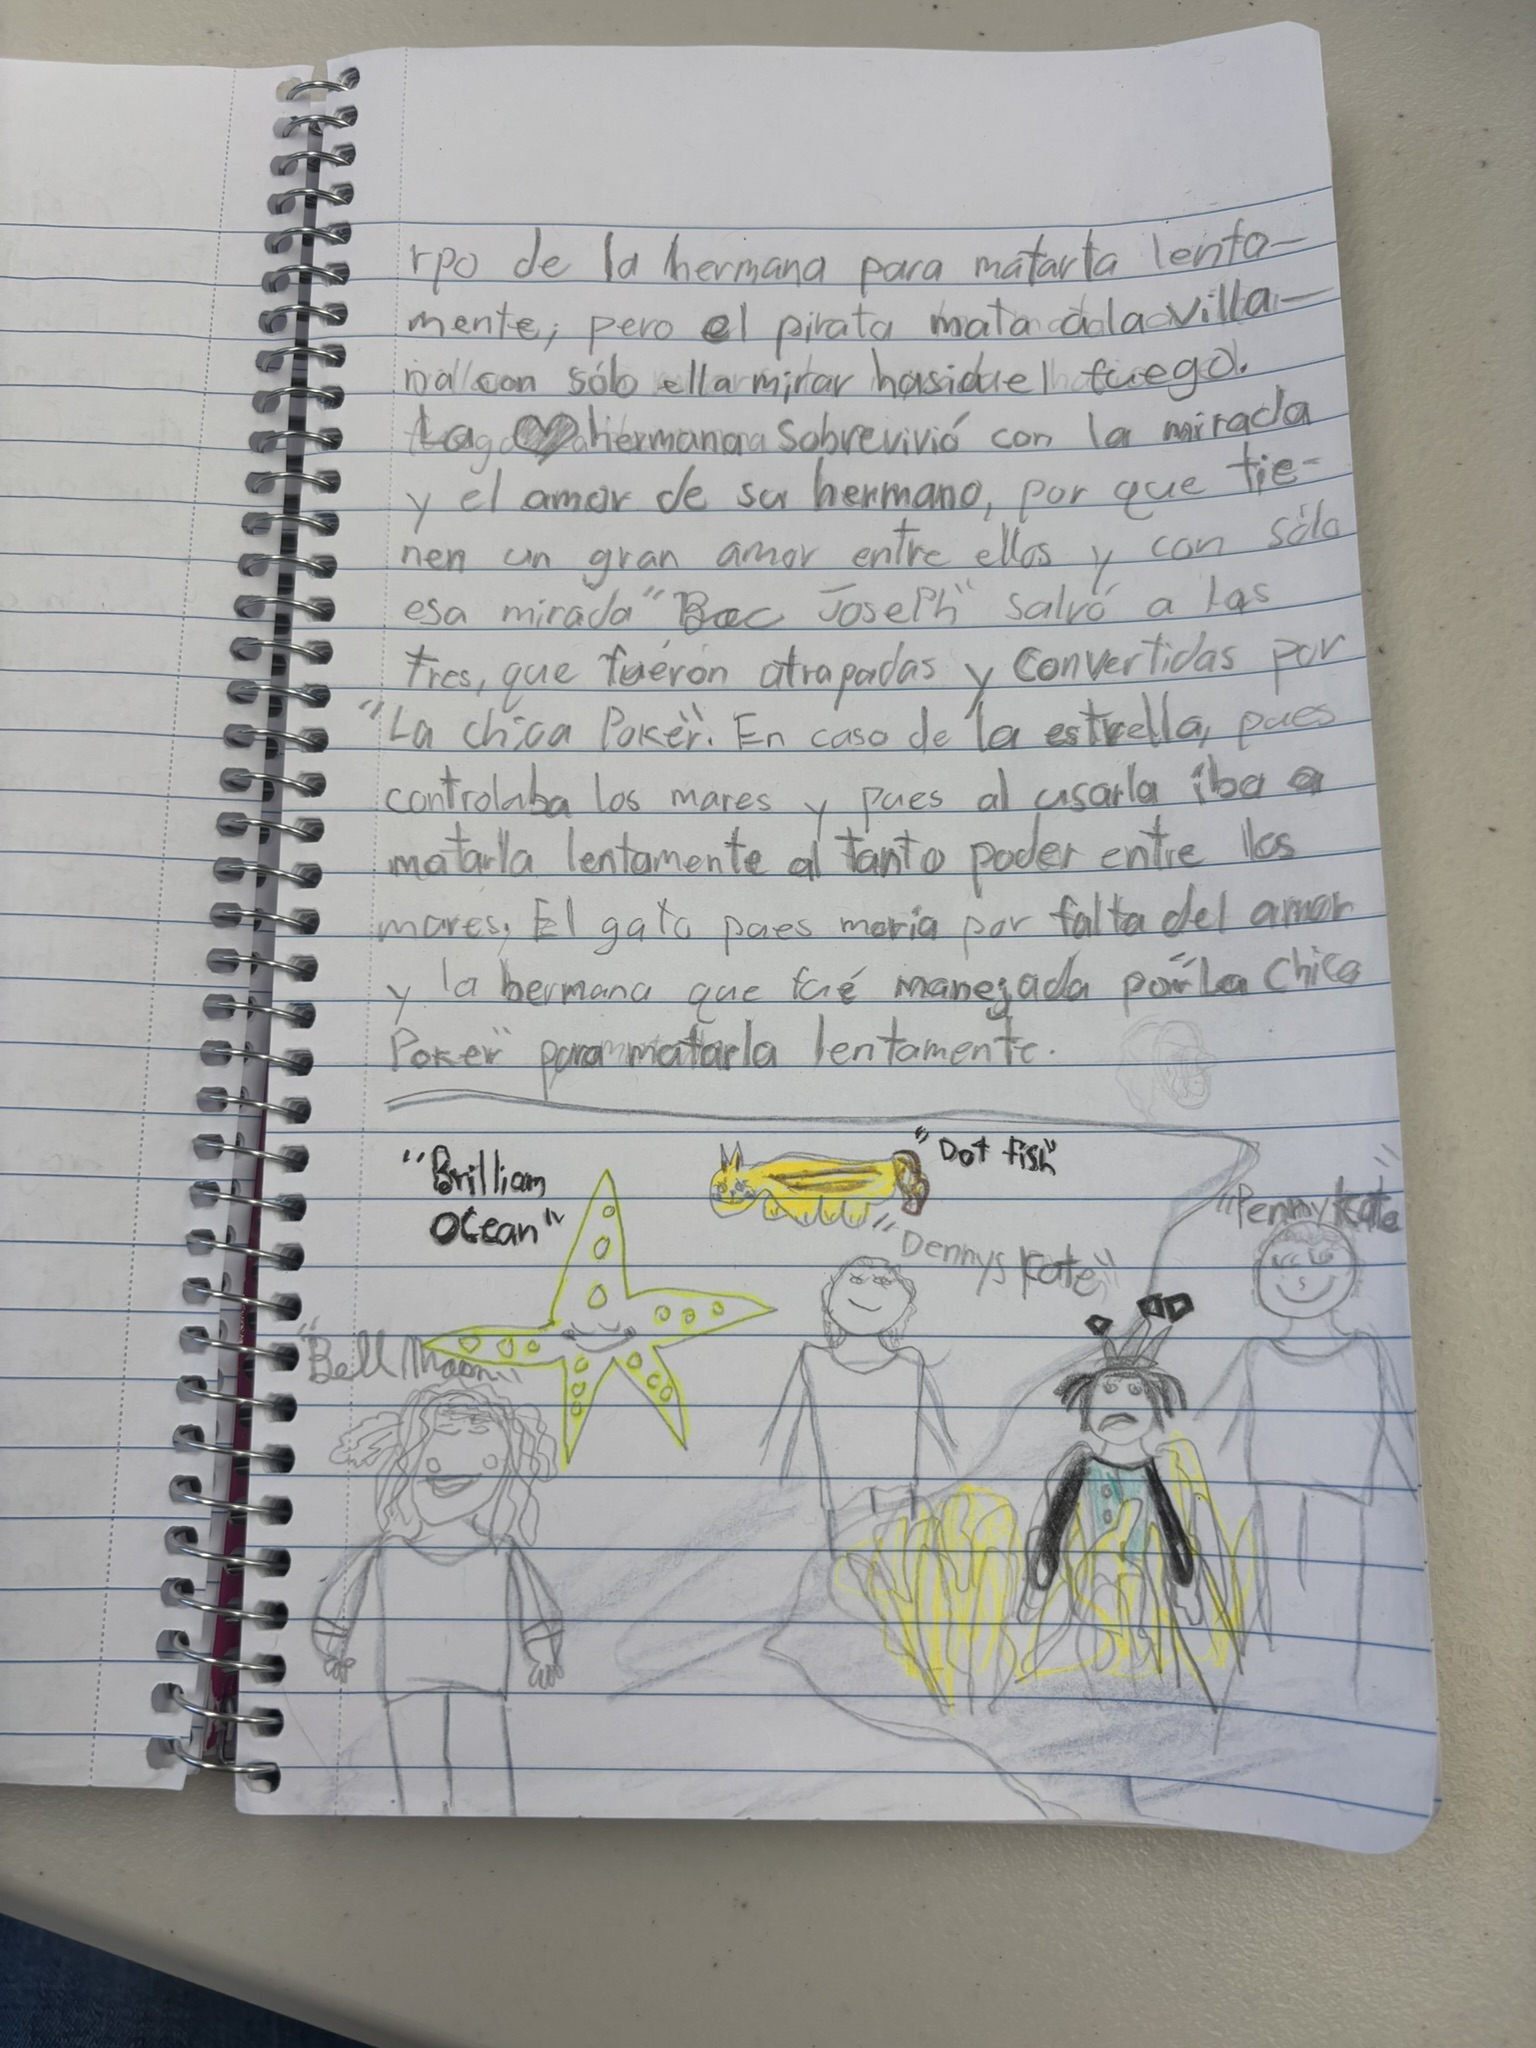 rpo de la hermana para matarla lenta-
mente, pero el pirata mata a la villa-
na con sólo ella mirar hasi el fuego.
La hermana sobrevivió con la mirada
y el amor de su hermano, por que tie-
nen un gran amor entre ellos y con sólo
esa mirada "Bac Joseph" salvó a las
tres, que fuerón atrapadas y convertidas por
"La chica Poker". En caso de la estrella, pues
controlaba los mares y pues al usarla iba a
matarla lentamente al tanto poder entre los
mares, El gato pues moria por falta del amor
y la hermana que fué manejada por "La Chica
Poker" para matarla lentamente.
"Brilliam
Ocean"
"Dot fish"
"Penny Kate"
"Dennys Kate"
"Bell Moon"